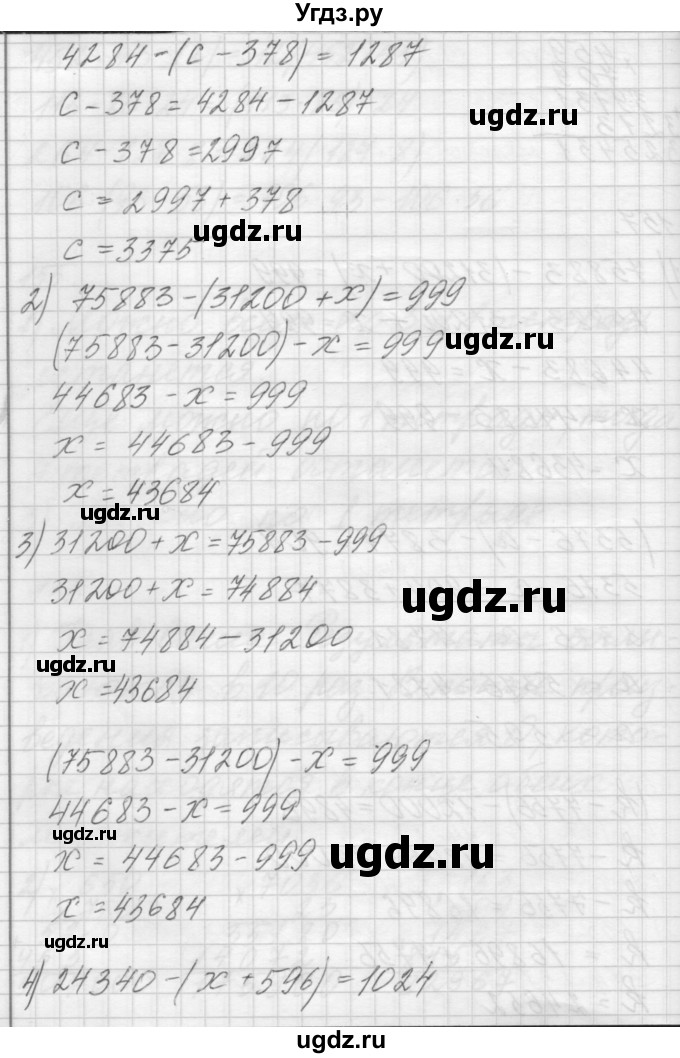 Угдз.ру
4284-(с-378)=1287
с-378=4284-1287
ugdz.ru
с-378=2997
с=2997+378
ugdz.ru
с=3375
2) 75883-(31200+x)=999
(75883-31200)-x=999
ugdz.ru
44683-x=999
x=44683-999
x=43684
ugdz.ru
3) 31200+x=75883-999
31200+x=74884
ugdz.ru
x=74884-31200
ugdz.ru
x=43684
(75883-31200)-x=999
44683-x=999
ugdz.ru
x=44683-999
ugdz.ru
x=43684
ugdz.ru
4) 24340-(x+596)=1024
ugdz.ru